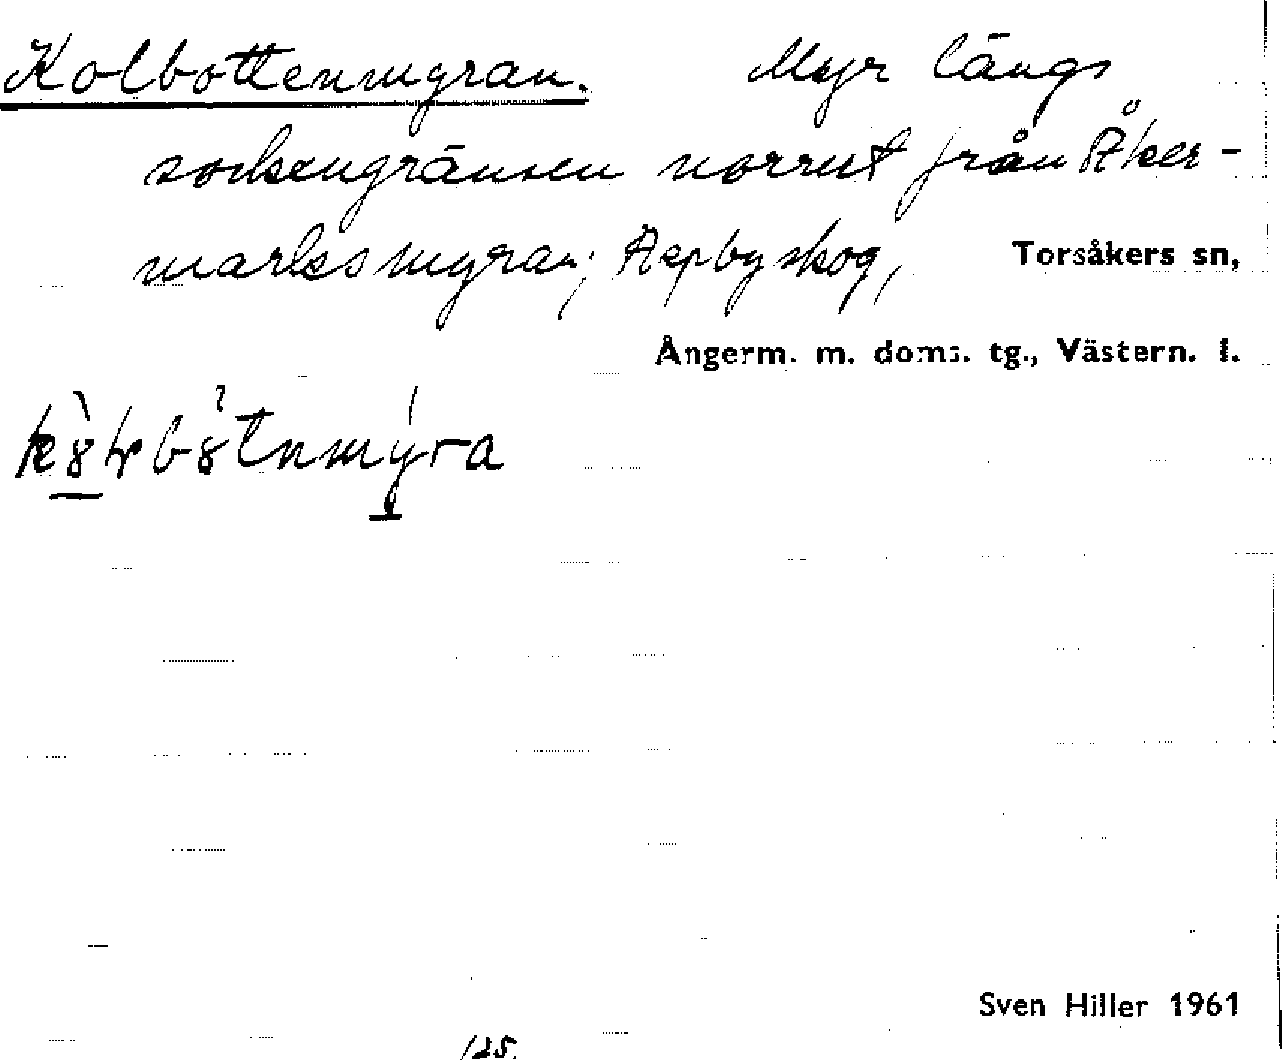 Kolbottenmyran. Myr längs
sockengränsen norrut från Åker-
marksmyran; Aspby skog, Torsåkers sn,
Ångerm. m. doms. tg., Västern. l.
Sven Hiller 1961
125.